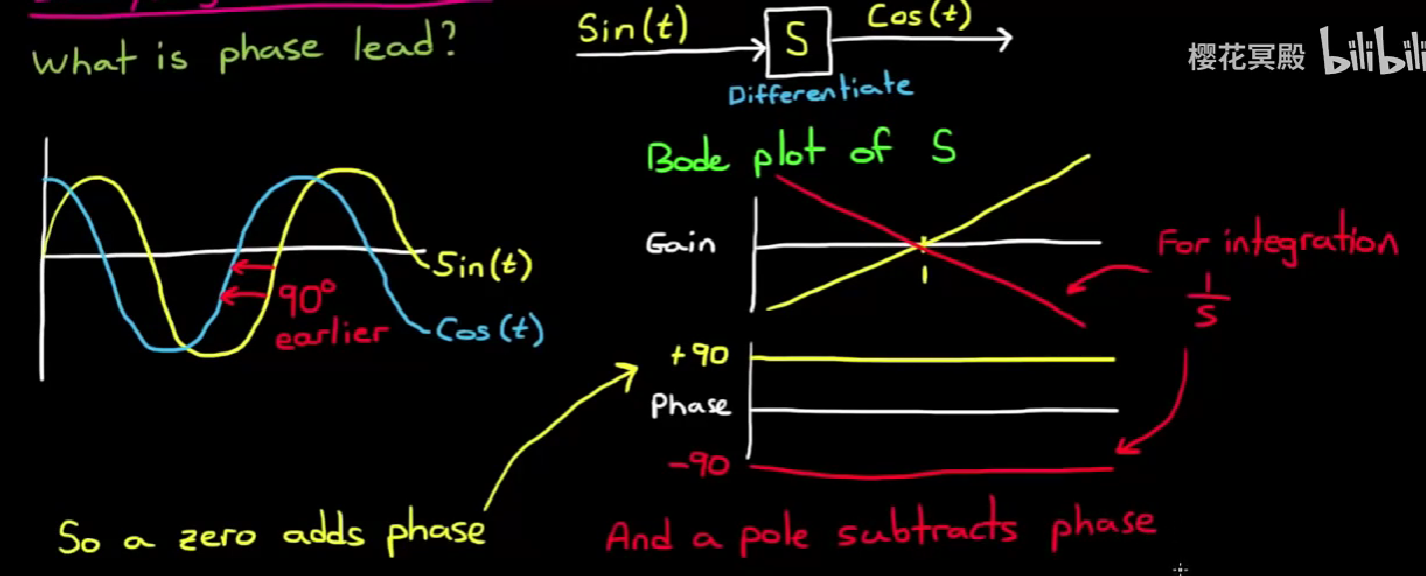 What is phase lead?
Sin(t)
S
Cos(t)
Differentiate
樱花冥殿 bilibili
Sin(t)
90°
earlier
Cos(t)
Bode plot of S
Gain
1
For integration
1
S
+90
Phase
-90
So a zero adds phase
And a pole subtracts phase